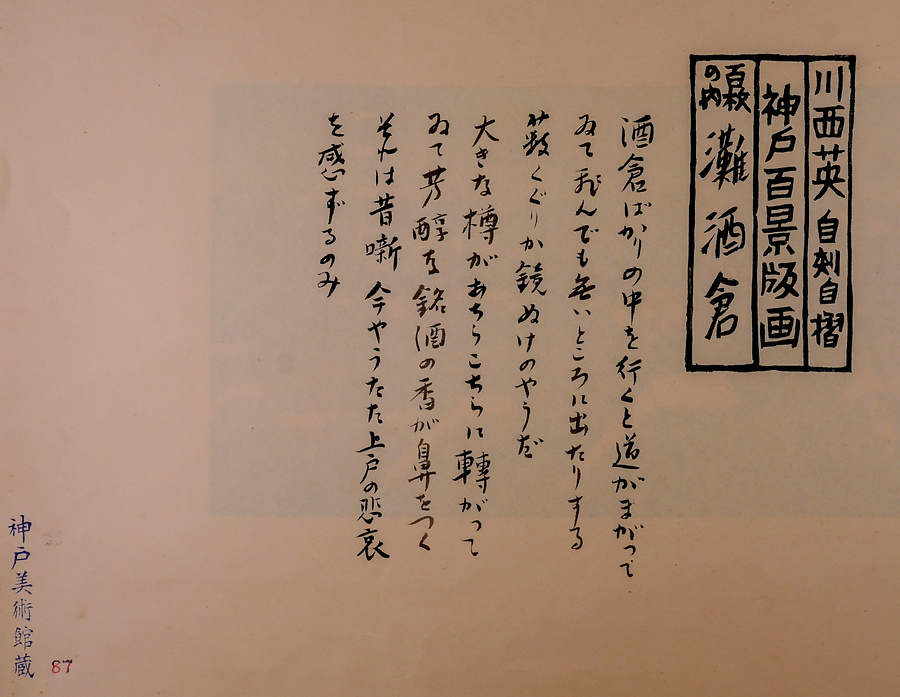 川西英 自刻自摺
神戸百景版画
百枚の内 灘酒倉
酒倉ばかりの中を行くと道がまがつて
ゐて飛んでも無いところに出たりする
藪くぐりか鏡ぬけのやうだ
大きな樽があちらこちらに轉がつて
ゐて芳醇な銘酒の香が鼻をつく
それは昔噺 今やうたた上戸の悲哀
を感ずるのみ
神戸美術館蔵
87